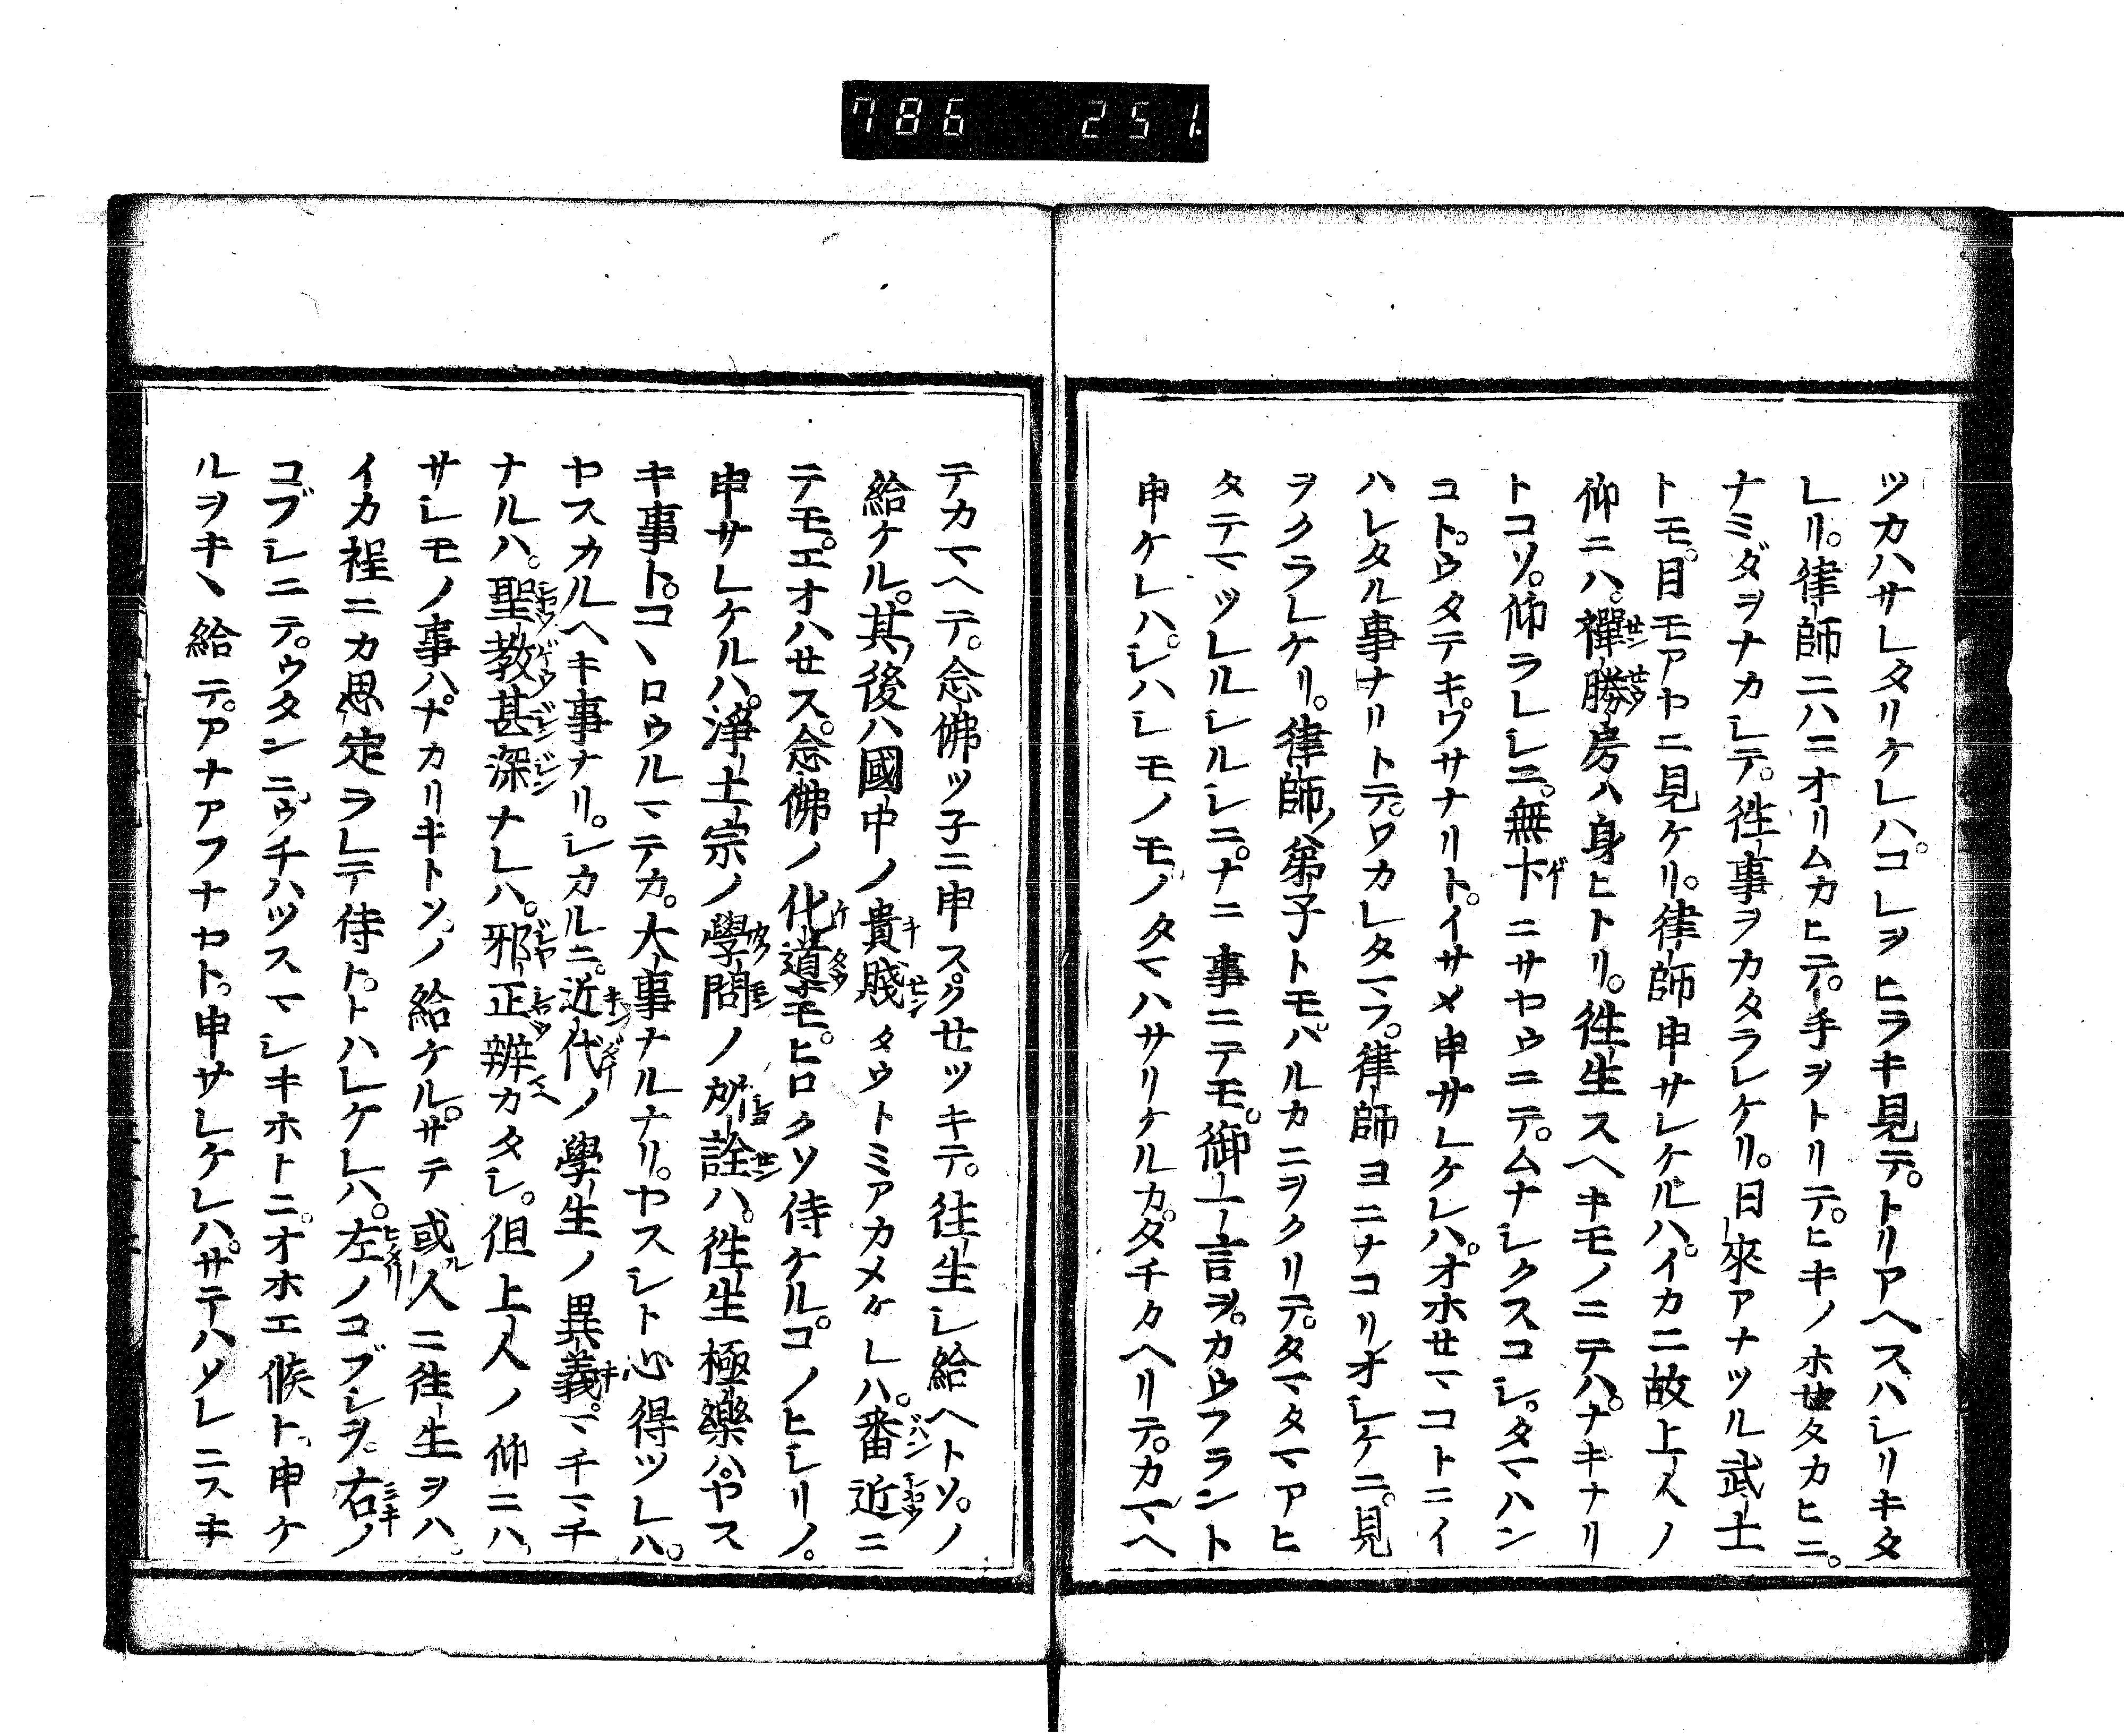 786 251
ツカハサレタリケレハ。コレヲヒラキ見テ。トリアヘスハシリキタ
レリ。律師ニハニオリムカヒテ。手ヲトリテ。ヒキノホセタカヒニ。
ナミダヲナカシテ。往事ヲカタラレケリ。日來アナツル武士
トモ。目モアヤニ見ケリ。律師申サレケルハ。イカニ故上人ノ
仰ニハ。禪勝房ハ身ヒトリ。徃生スヘキモノニテハ。ナキナリ
トコソ。仰ラレシニ。無下ニサヤウニテ。ムナシクスコシ。タマハン
コト。ウタテキワサナリト。イサメ申サレケレハ。オホセマコトニイ
ハレタル事ナリトテ。ワカレタマフ。律師ヨニナコリオシケニ。見
ヲクラレケリ。律師ノ弟子トモ。ハルカニヲクリテ。タマタマアヒ
タテマツレルシルシニ。ナニ事ニテモ。御一言ヲ。カウフラント
申ケレハ。シハシモノモノタマハサリケルカ。タチカヘリテ。カマヘ
テカマヘテ。念佛ツ子ニ申ス。クセツキテ。往生シ給ヘトソ。ノ
給ケル。其後ハ國中ノ貴賤タウトミアカメケレハ。番近ニ
テモ。エオハセス。念佛ノ化導モ。ヒロクソ侍ケル。コノヒシリノ。
申サレケルハ。淨土宗ノ學問ノ所詮ハ。徃生極樂ハヤス
キ事ト。コヽロウルマテカ。大事ナルナリ。ヤスシト心得ツレハ。
ヤスカルヘキ事ナリ。シカルニ。近代ノ學生ノ異義。マチマチ
ナルハ。聖教甚深ナレハ。邪正辨カタシ。但上人ノ仰ニハ。
サレモノ事ハ。ナカリキトソ。ノ給ケル。サテ或人ニ往生ヲハ。
イカ程ニカ思定ラレテ侍ト。トハレケレハ。左ノコブシヲ。右ノ
コブシニテ。ウタンニ。ウチハツスマシキホトニ。オホエ候ト。申ケ
ルヲキヽ給テ。アナアフナヤト。申サレケレハ。サテハソレニスキ